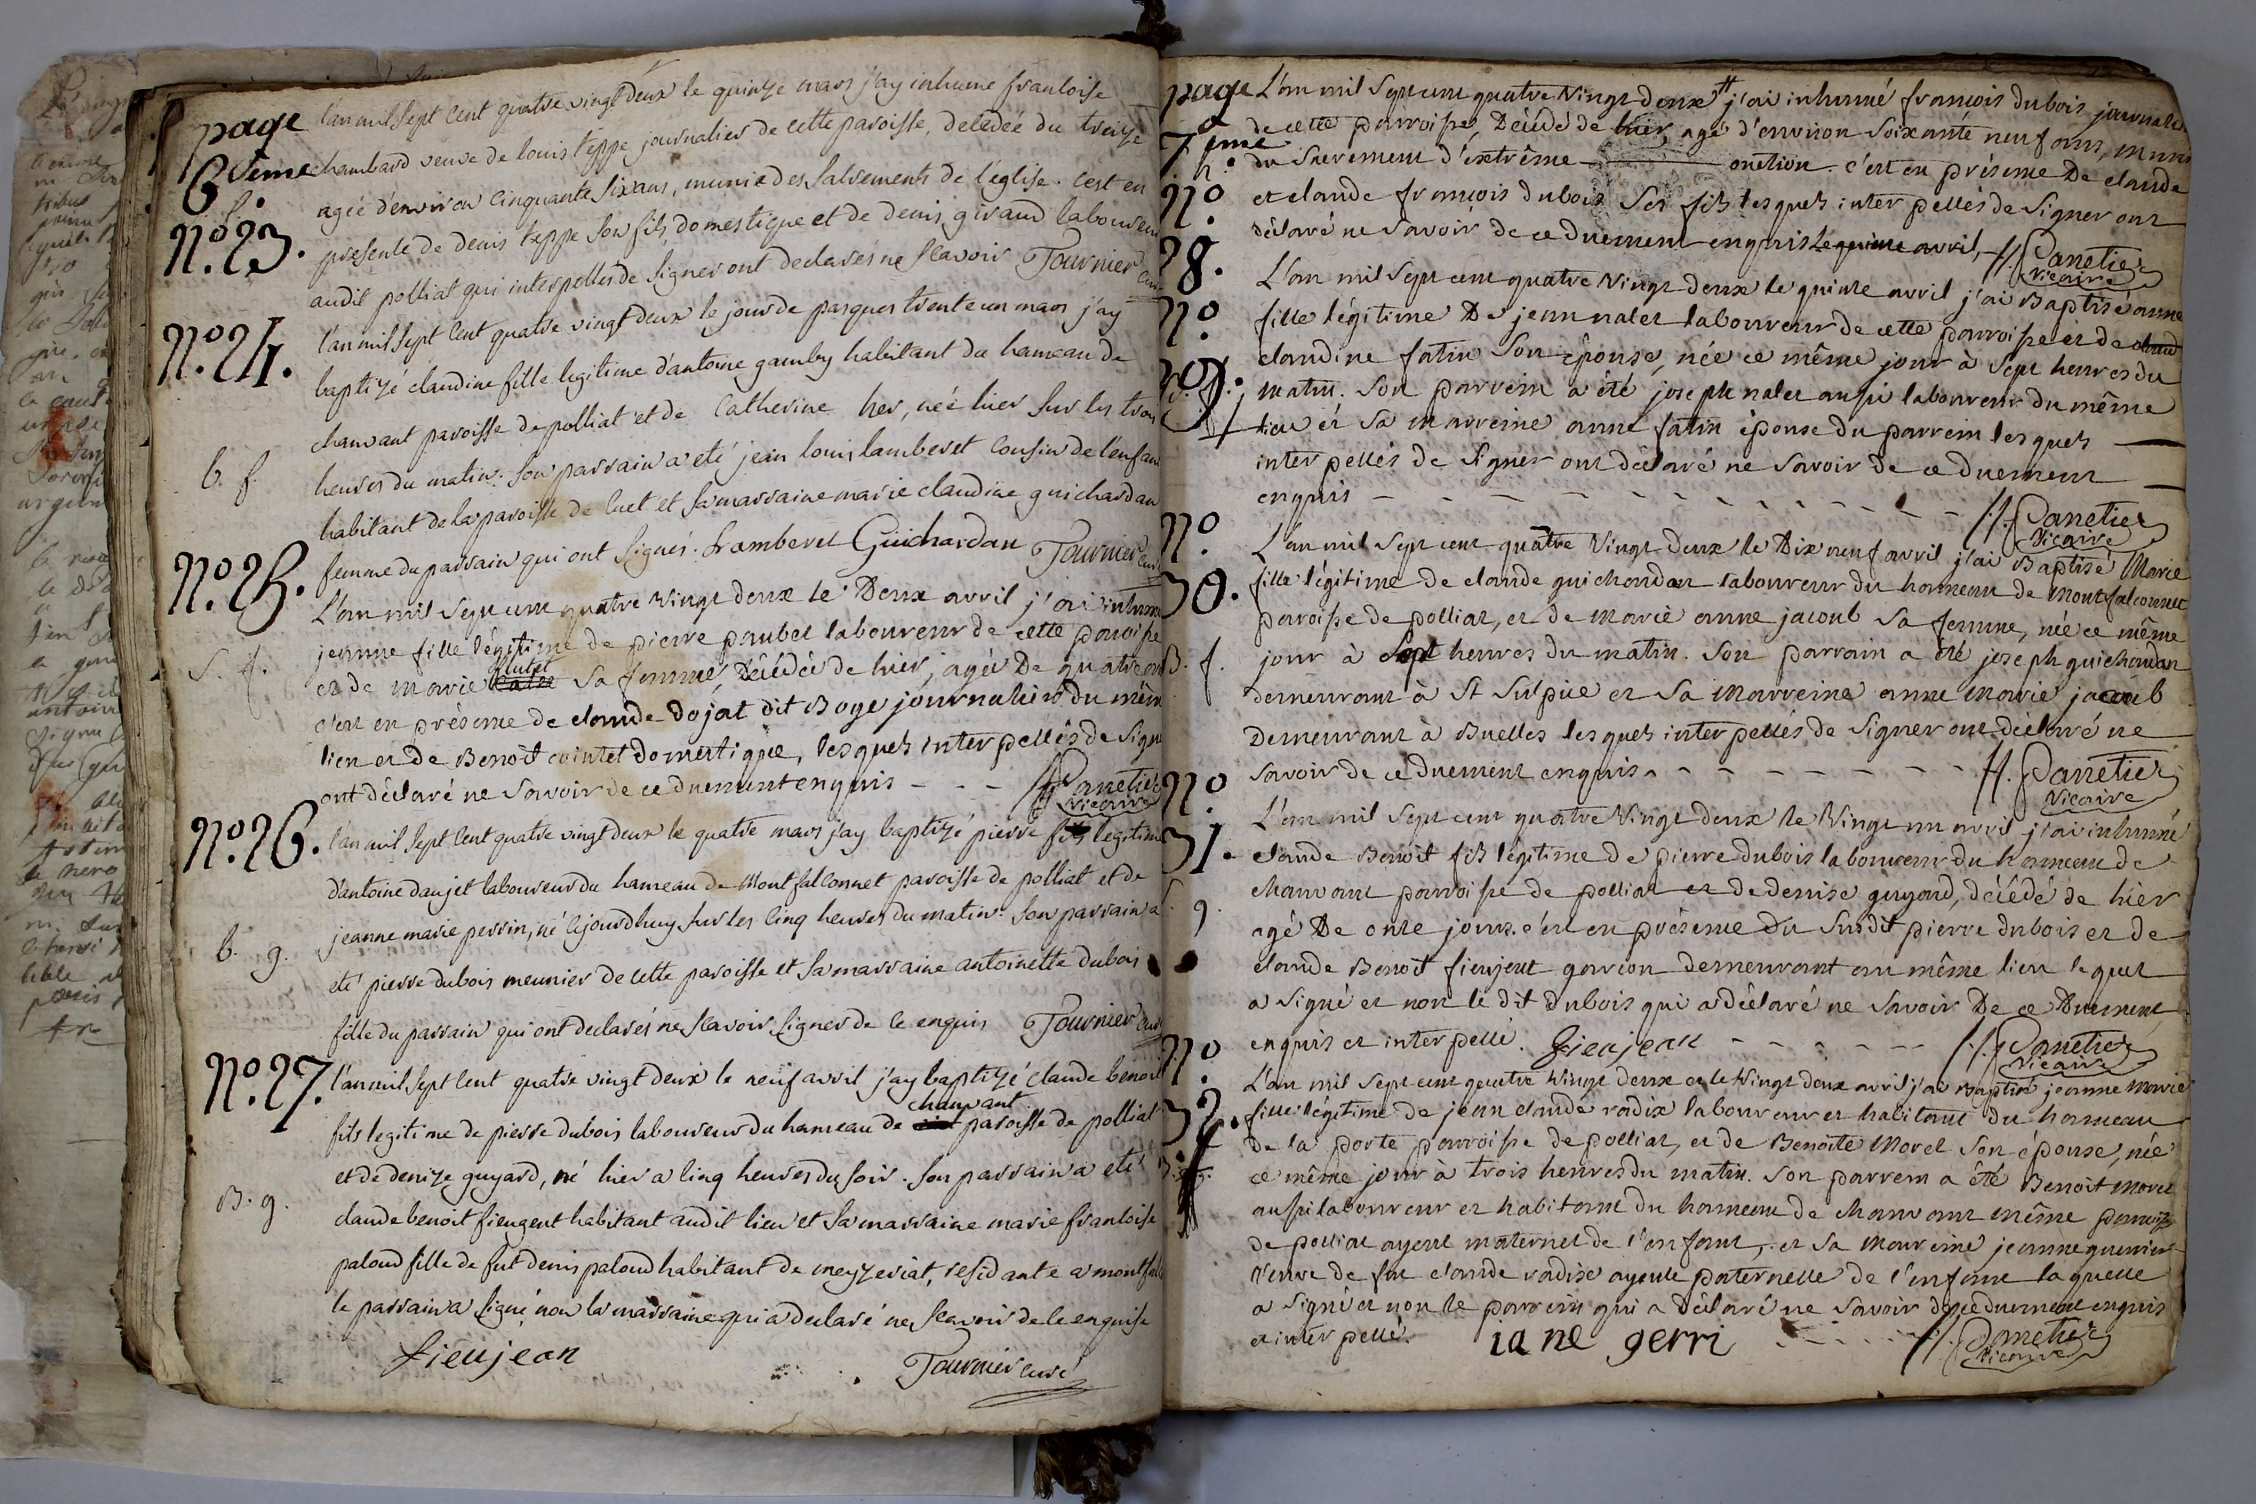 page
6 ème
l'an mil sept cent quatre vingt deux le quinze mars j'ay inhumé francoise
chambard veuve de louis teppe journalier de cette paroisse, decedée du treize
agée d'environ cinquante six ans, munie des sacrements de l'église. c'est en
presence de denis teppe son fils, domestique et de denis giraud laboureur
audit polliat qui interpellés de signer ont declarés ne scavoir Tournier curé
f.
N.º 23.
N.º 24.
l'an mil sept cent quatre vingt deux le jour de pasques trente un mars j'ay
baptizé claudine fille legitime d'antoine gamby habitant du hameau de
chanvant paroisse de polliat et de Catherine her, née hier sur les trois
heures du matin. son parrain a eté jean louis lamberet cousin de l'enfant
habitant de la paroisse de cuet et sa marraine marie claudine guichardan
femme du parrain qui ont signés. Lamberet Guichardan Tournier curé
b. f.
N.º 25.
L'an mil sept cent quatre vingt deux le Deux avril j'ai inhumé
jeanne fille légitime de pierre paubel laboureur de cette paroisse
et de marie lutet sa femme, Décédée de hier, agée De quatre ans
c'est en présence de claude dojat dit Boge journalier du même
lieu et de Benoit cointet domestique, lesquels interpellés de signer
ont déclaré ne savoir de ce duement enquis - - - H. Panetier
vicaire
S. f.
N.º 26.
l'an mil sept cent quatre vingt deux le quatre mars j'ay baptizé pierre fils legitime
d'antoine daujet laboureur du hameau de Montfalconnet paroisse de polliat et de
jeanne marie perrin, né cejourdhuy sur les cinq heures du matin. son parrain a
eté pierre dubois meunier de cette paroisse et sa marraine antoinette dubois
fille du parrain qui ont declarés ne scavoir signer de ce enquis Tournier curé
b. g.
N.º 27.
l'an mil sept cent quatre vingt deux le neuf avril j'ay baptizé claude benoit
fils legitime de pierre dubois laboureur du hameau de chanvant paroisse de polliat
et de denize guyard, né hier a cinq heures du soir. son parrain a eté
claude benoit fieugent habitant audit lieu et sa marraine marie francoise
paloud fille de fut denis paloud habitant de meyzeriat, residante a montfalc
le parrain a signé, non la marraine qui a declaré ne scavoir de ce enquise
B. g.
fieujean
Tournier curé
page
7 ème
L'an mil sept cent quatre vingt deux j'ai inhumé francois dubois journalier
de cette parroisse, Décédé de hier, agé d'environ soixante neuf ans, muni
du sacrement d'extrême onction. c'est en présence De claude
et claude francois dubois ses fils lesquels interpellés de signer ont
déclaré ne savoir de ce duement enquis le quinze avril, H. Panetier
vicaire
nº
28.
L'an mil sept cent quatre vingt deux le quinze avril j'ai Baptisé anne
fille légitime De jean nalet laboureur de cette parroisse et de
claudine fatin son épouse, née ce même jour à sept heures du
matin. son parrein a été joseph nalet aussi laboureur du même
lieu et sa marreine anne fatin épouse du parrein lesquels
interpellés de signer ont déclaré ne savoir de ce duement
enquis - - - - - - - - - - H. Panetier
vicaire
nº
nº
30.
L'an mil sept cent quatre vingt deux le Dix neuf avril j'ai Baptisé Marie
fille légitime de claude guichondan laboureur du hameau de montfalconnet
paroisse de polliat, et de marie anne jacoub sa femme, née ce même
jour à sept heures du matin. son parrain a été joseph guichondan
demeurant à St Sulpice et sa marreine anne marie jacoub
Demeurant à Buelles lesquels interpellés de signer ont déclaré ne
savoir de ce duement enquis. - - - - - - - H. Panetier
vicaire
B. f.
nº
31.
L'an mil sept cent quatre vingt deux le vingt un avril j'ai inhumé
claude Benoit fils légitime de pierre dubois laboureur du hameau de
chanvant parroisse de polliat et de denise guyard, décédé de hier
agé De onze jours. c'est en présence Du susdit pierre dubois et de
claude Benoit fieujent garcon demeurant au même lieu lequel
a signé et non le dit dubois qui a déclaré ne savoir De ce Duement
enquis et interpellé. fieujean - - - - - - H. Panetier
vicaire
S. g.
nº
32.
L'an mil sept cent quatre vingt deux et le vingt deux avril j'ai Baptisé jeanne Marie
fille légitime de jean claude radix laboureur et habitant du hameau
de la porte parroisse de polliat, et de Benoite Morel son épouse, née
ce même jour à trois heures du matin. son parrein a été Benoit morel
aussi laboureur et habitant du hameau de chanvant même paroisse
de polliat ayeul maternel de l'enfant, et sa marreine jeanne guerrier
veuve de feu claude radix ayeule paternelle de l'enfant laquelle
a signé et non le parrein qui a déclaré ne savoir de ce duement enquis
et interpellé. iane gerri - - - - - H. Panetier
vicaire